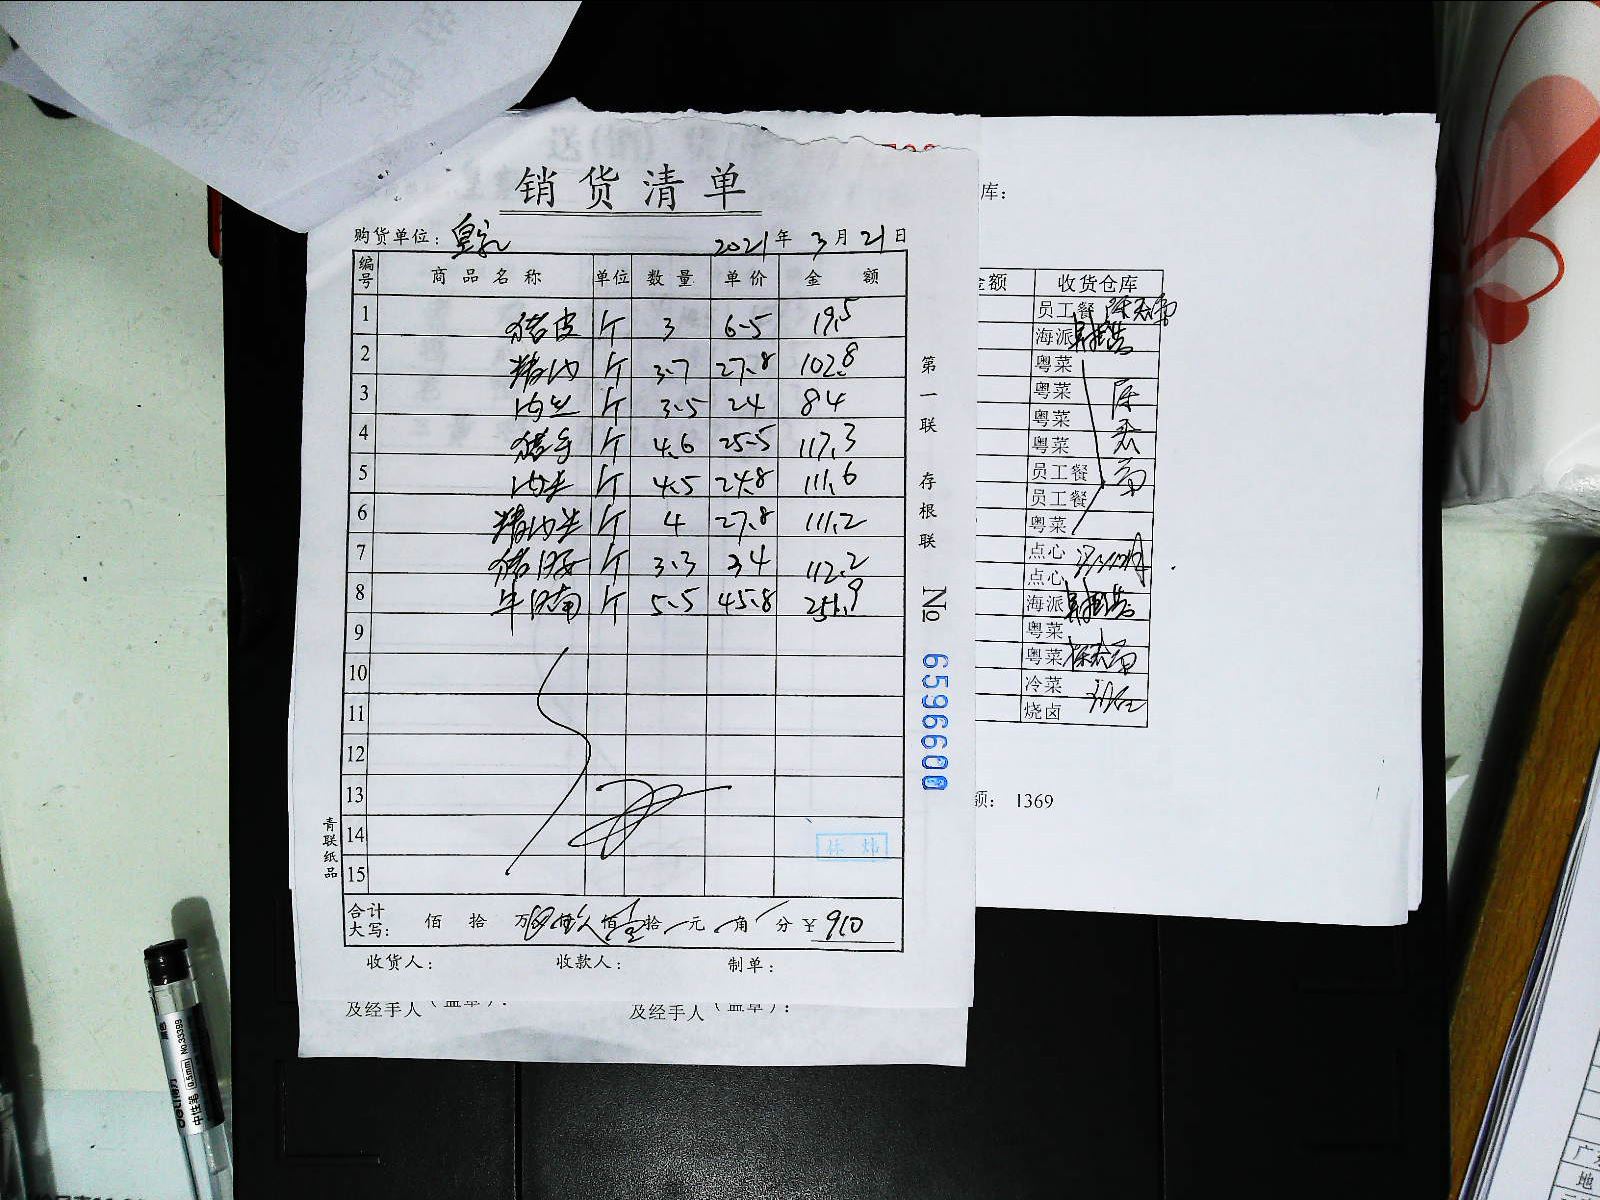 销货清单
购货单位: 皇家 2021年3月21日
编号 商品名称 单位 数量 单价 金额
1 猪皮 斤 3 6.5 19.5
2 精肉 斤 3.7 27.8 102.8
3 肉丝 斤 3.5 24 84
4 猪手 斤 4.6 25.5 117.3
5 肉尖 斤 4.5 24.8 111.6
6 精肉尖 斤 4 27.8 111.2
7 猪腰 斤 3.3 34 112.2
8 牛腩 斤 5.5 45.8 251.9
9
10
11
12
13
14
15
合计大写: 佰 拾 万 仟 佰 拾 元 角 分 ¥ 910
收货人: 收款人: 制单:
及经手人(盖章): 及经手人(盖章):
青联纸品
第一联 存根联 № 6596600
库:
金额 收货仓库
员工餐
海派
粤菜
粤菜
粤菜
粤菜
员工餐
员工餐
粤菜
点心
点心
海派
粤菜
粤菜
冷菜
烧卤
额: 1369
deli得力 中性笔 (0.5mm) No.33399